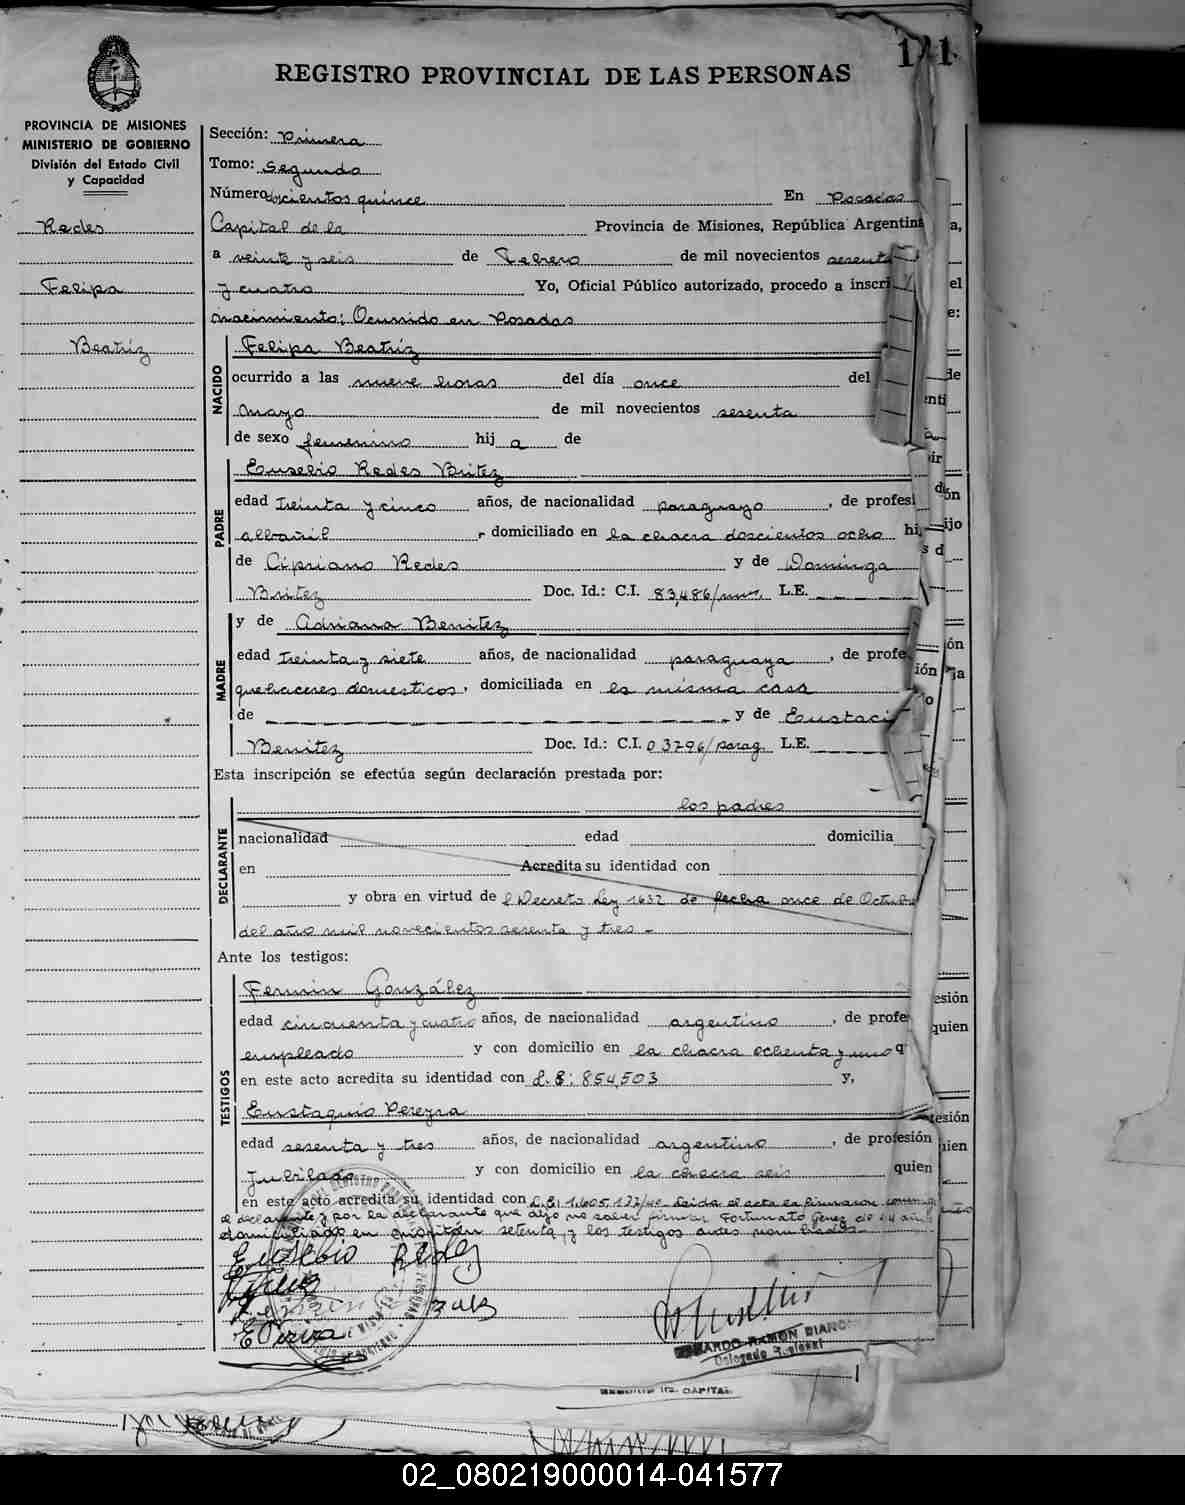 141
REGISTRO PROVINCIAL DE LAS PERSONAS
PROVINCIA DE MISIONES
MINISTERIO DE GOBIERNO
División del Estado Civil
y Capacidad
Redes
Felipa
Beatriz
Sección: Primera
Tomo: Segundo
Número doscientos quince En Posadas
Capital de la Provincia de Misiones, República Argentina
a veinte y seis de Febrero de mil novecientos sesenta
y cuatro Yo, Oficial Público autorizado, procedo a inscri
nacimiento: Ocurrido en Posadas
NACIDO
Felipa Beatriz
ocurrido a las nueve horas del día once del
Mayo de mil novecientos sesenta
de sexo femenino hij a de
PADRE
Eusebio Redes Britez
edad treinta y cinco años, de nacionalidad paraguayo, de profesi
albañil, domiciliado en la chacra doscientos ocho hi
de Cipriano Redes y de Dominga
Britez Doc. Id.: C.I. 83,486/mnes. L.E.
MADRE
y de Adriana Benitez
edad treinta y siete años, de nacionalidad paraguaya, de profe
quehaceres domesticos, domiciliada en la misma casa
de y de Eustaci
Benitez Doc. Id.: C.I. 03796/parag. L.E.
Esta inscripción se efectúa según declaración prestada por:
DECLARANTE
los padres
nacionalidad edad domicilia
en Acredita su identidad con
y obra en virtud de l Decreto Ley 1632 de fecha once de Octubre
del año mil novecientos sesenta y tres.-
Ante los testigos:
TESTIGOS
Fermin González
edad cincuenta y cuatro años, de nacionalidad argentino, de profe
empleado y con domicilio en la chacra ochenta y uno q
en este acto acredita su identidad con L.E: 854,503 y,
Eustaquio Pereyra
edad sesenta y tres años, de nacionalidad argentino, de profesión
Jubilado y con domicilio en la chacra seis quien
en este acto acredita su identidad con L.E: 1.605,137/ Leida el acta la firmaron conmigo
el declarante y por la declarante que dijo no saber firmar Fortunato Genez de 44 años
domiciliado en setenta, y los testigos antes nombrados.-
Eusebio Redes
Genez
E Pereira
EDUARDO RAMON BIANC
Delegado Regional
CAPITAL
02_080219000014-041577